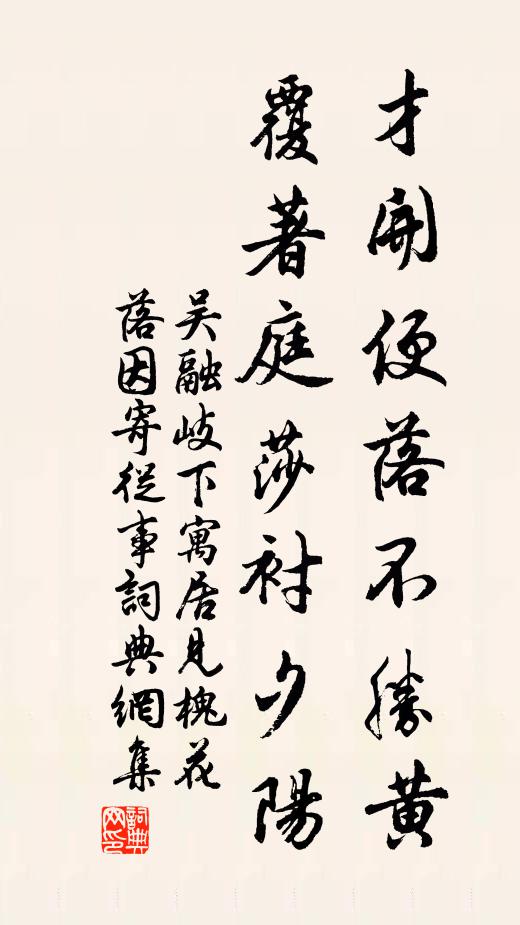 才開便落不勝黃
覆著庭莎衬夕陽
吴融岐下寓居見槐花
落因寄從事詞典網集
詞典
网印